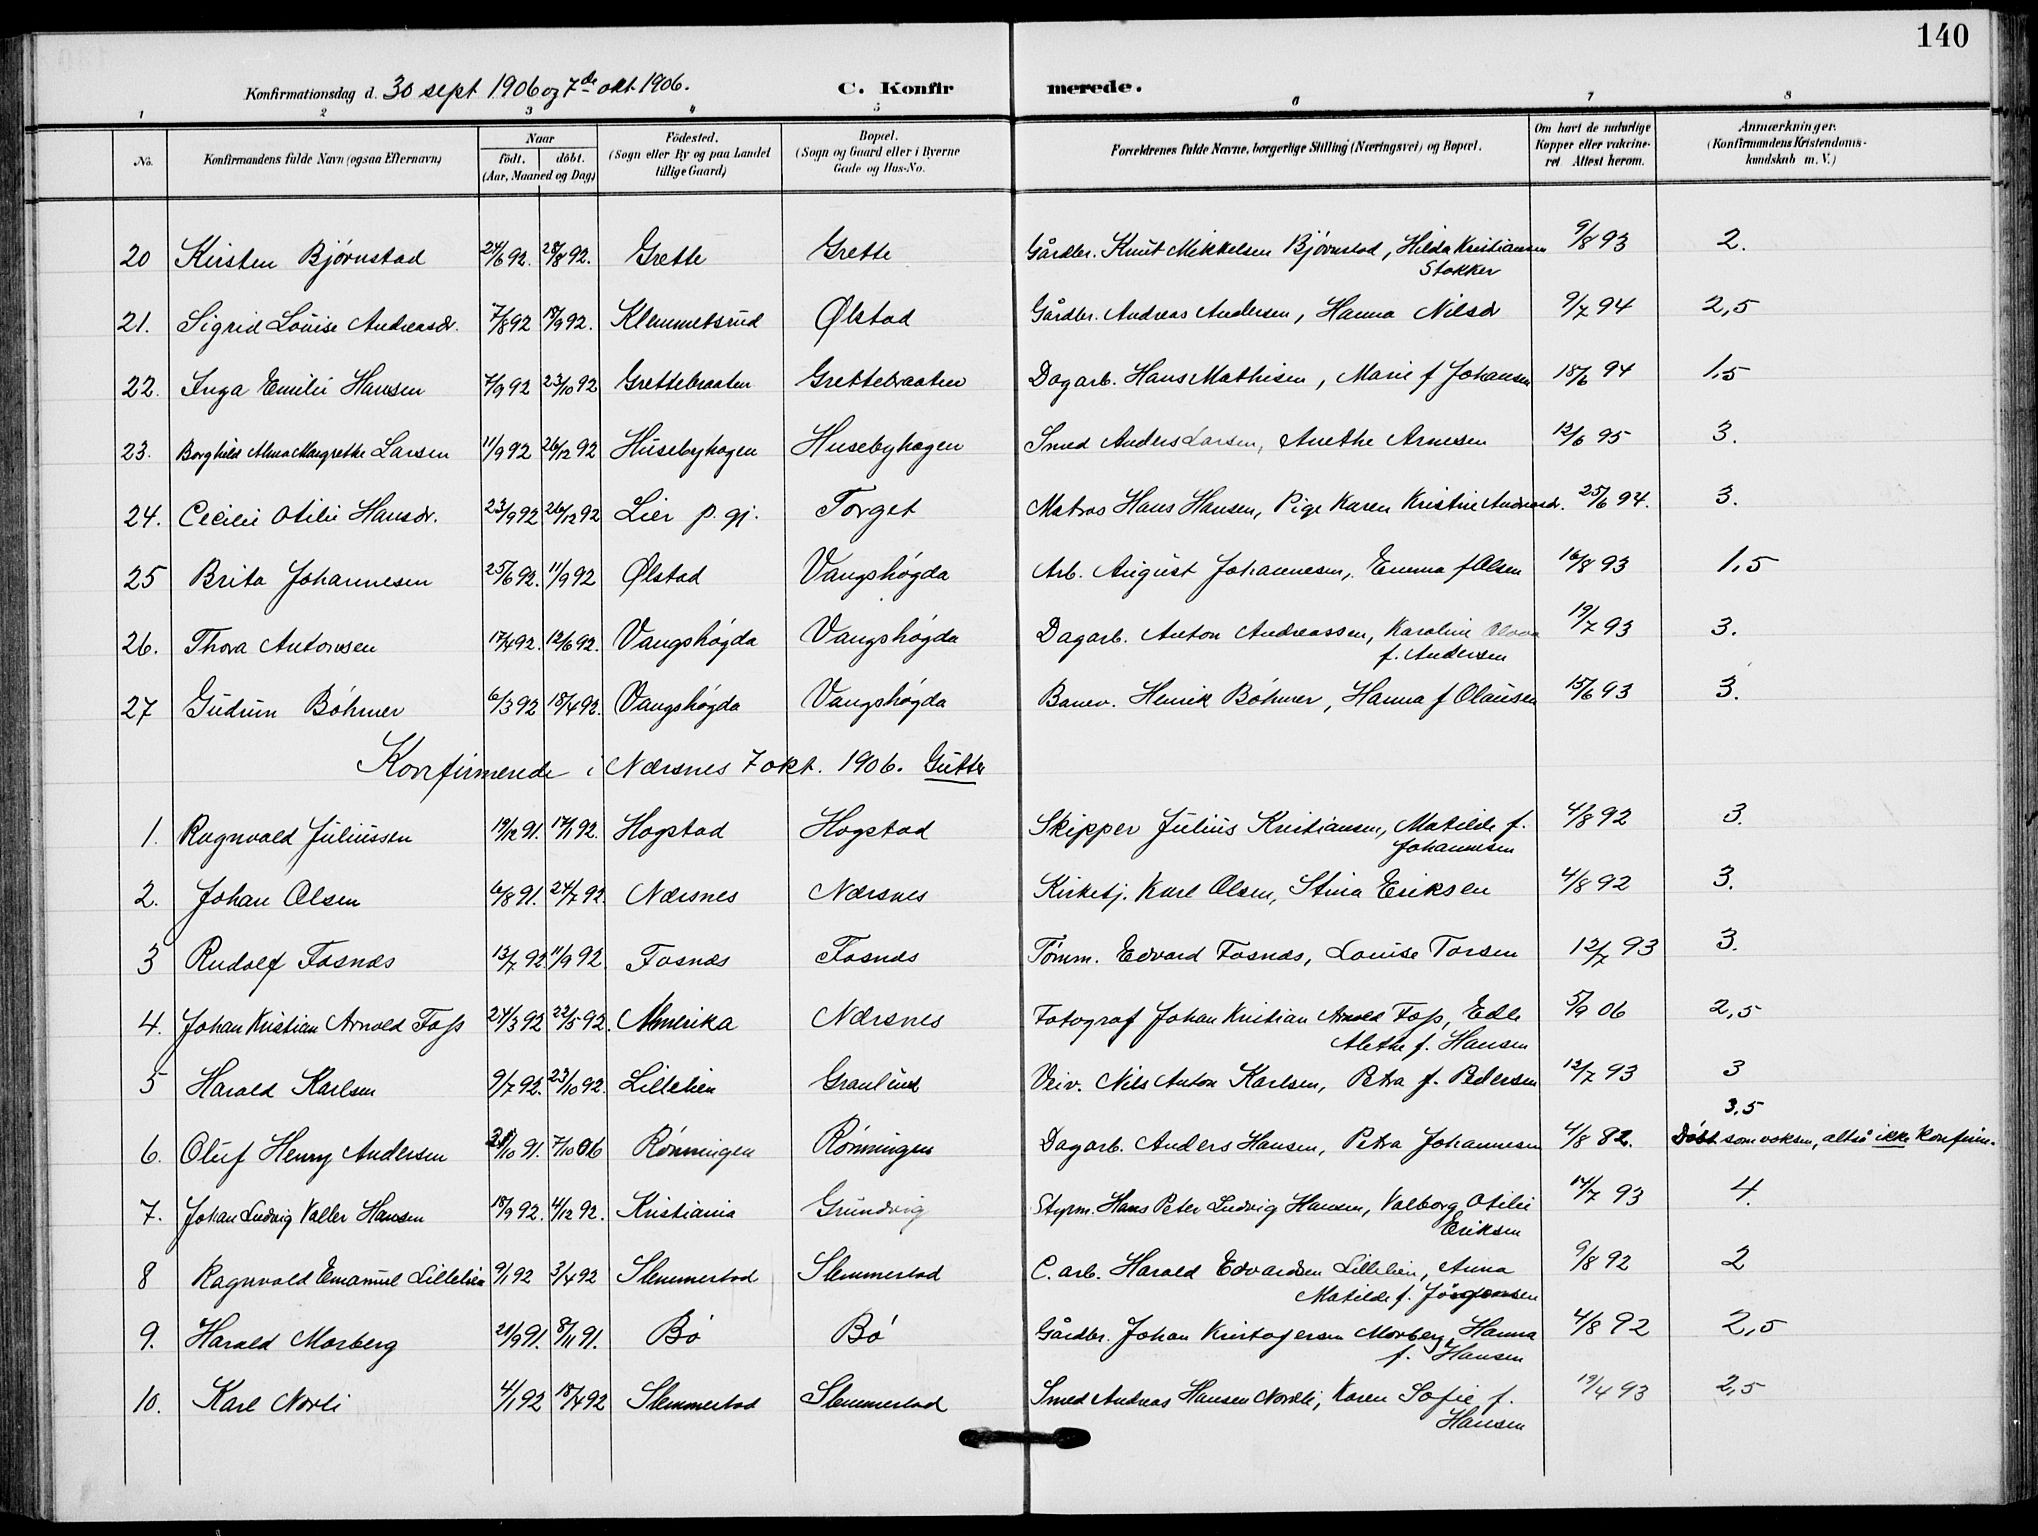 140
Konfirmationsdag d. 30 sept 1906 og 7de okt. 1906. C. Konfirmerede.
1 2 3 4 5 6 7 8
No. Konfirmandens fulde Navn (ogsaa Efternavn) Naar födt. döbt. (Aar, Maaned og Dag) Födested. (Sogn eller By og paa Landet tillige Gaard) Bopæl. (Sogn og Gaard eller i Byerne Gade og Hus-No. Forældrenes fulde Navne, borgerlige Stilling (Næringsvei) og Bopæl. Om havt de naturlige Kopper eller vakcineret. Attest herom. Anmærkninger. (Konfirmandens Kristendomskundskab m. V.)
20 Kirsten Bjørnstad 24/6 92. 28/8 92. Grette Grette Gårdbr. Knut Mikkelsen Bjørnstad, Hilda Kristiansen Stokker 9/8 93 2.
21. Sigrid Louise Andreasdr. 7/8 92 18/9 92. Klemmetsrud Ølstad Gårdbr. Andreas Andersen, Hanna Nilsdr 9/7 94 2,5
22. Inga Emilie Hansen 7/9 92 23/10 92 Grettebraaten Grettebraaten Dagarb. Hans Mathisen, Marie f Johansen 18/6 94 1,5
23. Borghild Alma Margrethe Larsen 11/9 92 26/12 92 Husebyhagen Husebyhagen Smed Anders Larsen, Anethe Arnesen 12/6 95 3.
24. Cecilie Otilie Hansdr. 23/9 92 26/12 92 Lier p. gj. Torget Matros Hans Hansen, Pige Karen Kristine Andreasdr. 25/6 94. 3.
25 Brita Johannesen 25/6 92. 11/9 92 Ølstad Vangshøgda Arb. August Johannesen, Emma f Olsen 16/8 93 1,5
26. Thora Antonsen 17/4 92. 12/6 92. Vangshøgda Vangshøgda Dagarb. Anton Andreassen, Karoline Olava f. Andersen 19/7 93 3.
27 Gudrun Böhmer 6/3 92 18/4 92. Vangshøgda Vangshøgda Banev. Henrik Böhmer, Hanna f Olausen 15/6 93 3.
Konfirmerede i Nærsnes 7 okt. 1906. Gutter
1. Ragnvald Juliussen 19/12 91. 17/1 92. Hogstad Hogstad Skipper Julius Kristiansen, Matilde f. Johannesen 4/8 92 3.
2. Johan Olsen 6/8 91. 24/7 92. Nærsnes Nærsnes Kirketj. Karl Olsen, Stina Eriksen 4/8 92 3.
3 Rudolf Fosnæs 13/7 92 11/9 92. Fosnæs Fosnæs Tømm. Edvard Fosnæs, Louise Torsen 12/7 93 3.
4. Johan Kristian Arnold Foss 24/3 92 22/5 92. Amerika Nærsnes Fotograf Johan Kristian Arnold Foss, Edle Alethe f. Hansen 5/9 06 2,5
5 Harald Karlsen 9/7 92. 23/10 92. Lillelien Granlund Veiv. Nils Anton Karlsen, Petra f. Pedersen 12/7 93 3
6. Oluf Henry Andersen /10 91. 7/10 06 Rønningen Rønningen Dagarb. Anders Hansen, Petra Johannesen 4/8 82. 3,5 Döbt som voksen, altså ikke konfirm.
7. Johan Ludvig Valler Hansen 18/9 92. 4/12 92. Kristiania Grundvig Styrm. Hans Peter Ludvig Hansen, Valborg Otilie Eriksen 14/7 93 4.
8 Ragnvald Emanuel Lillelien 9/1 92 3/4 92 Slemmestad Slemmestad C. arb. Harald Edvardsen Lillelien, Anna Matilde f. Jörgensen 9/8 92 2
9. Harald Morberg 21/9 91. 8/11 91. Bö Bö Gårdbr. Johan Kristofersen Morberg, Hanna f. Hansen 4/8 92 2,5
10. Karl Norli 4/1 92 18/4 92 Slemmestad Slemmestad Smed Andreas Hansen Nordli, Karen Sofie f. Hansen 19/4 93 2,5